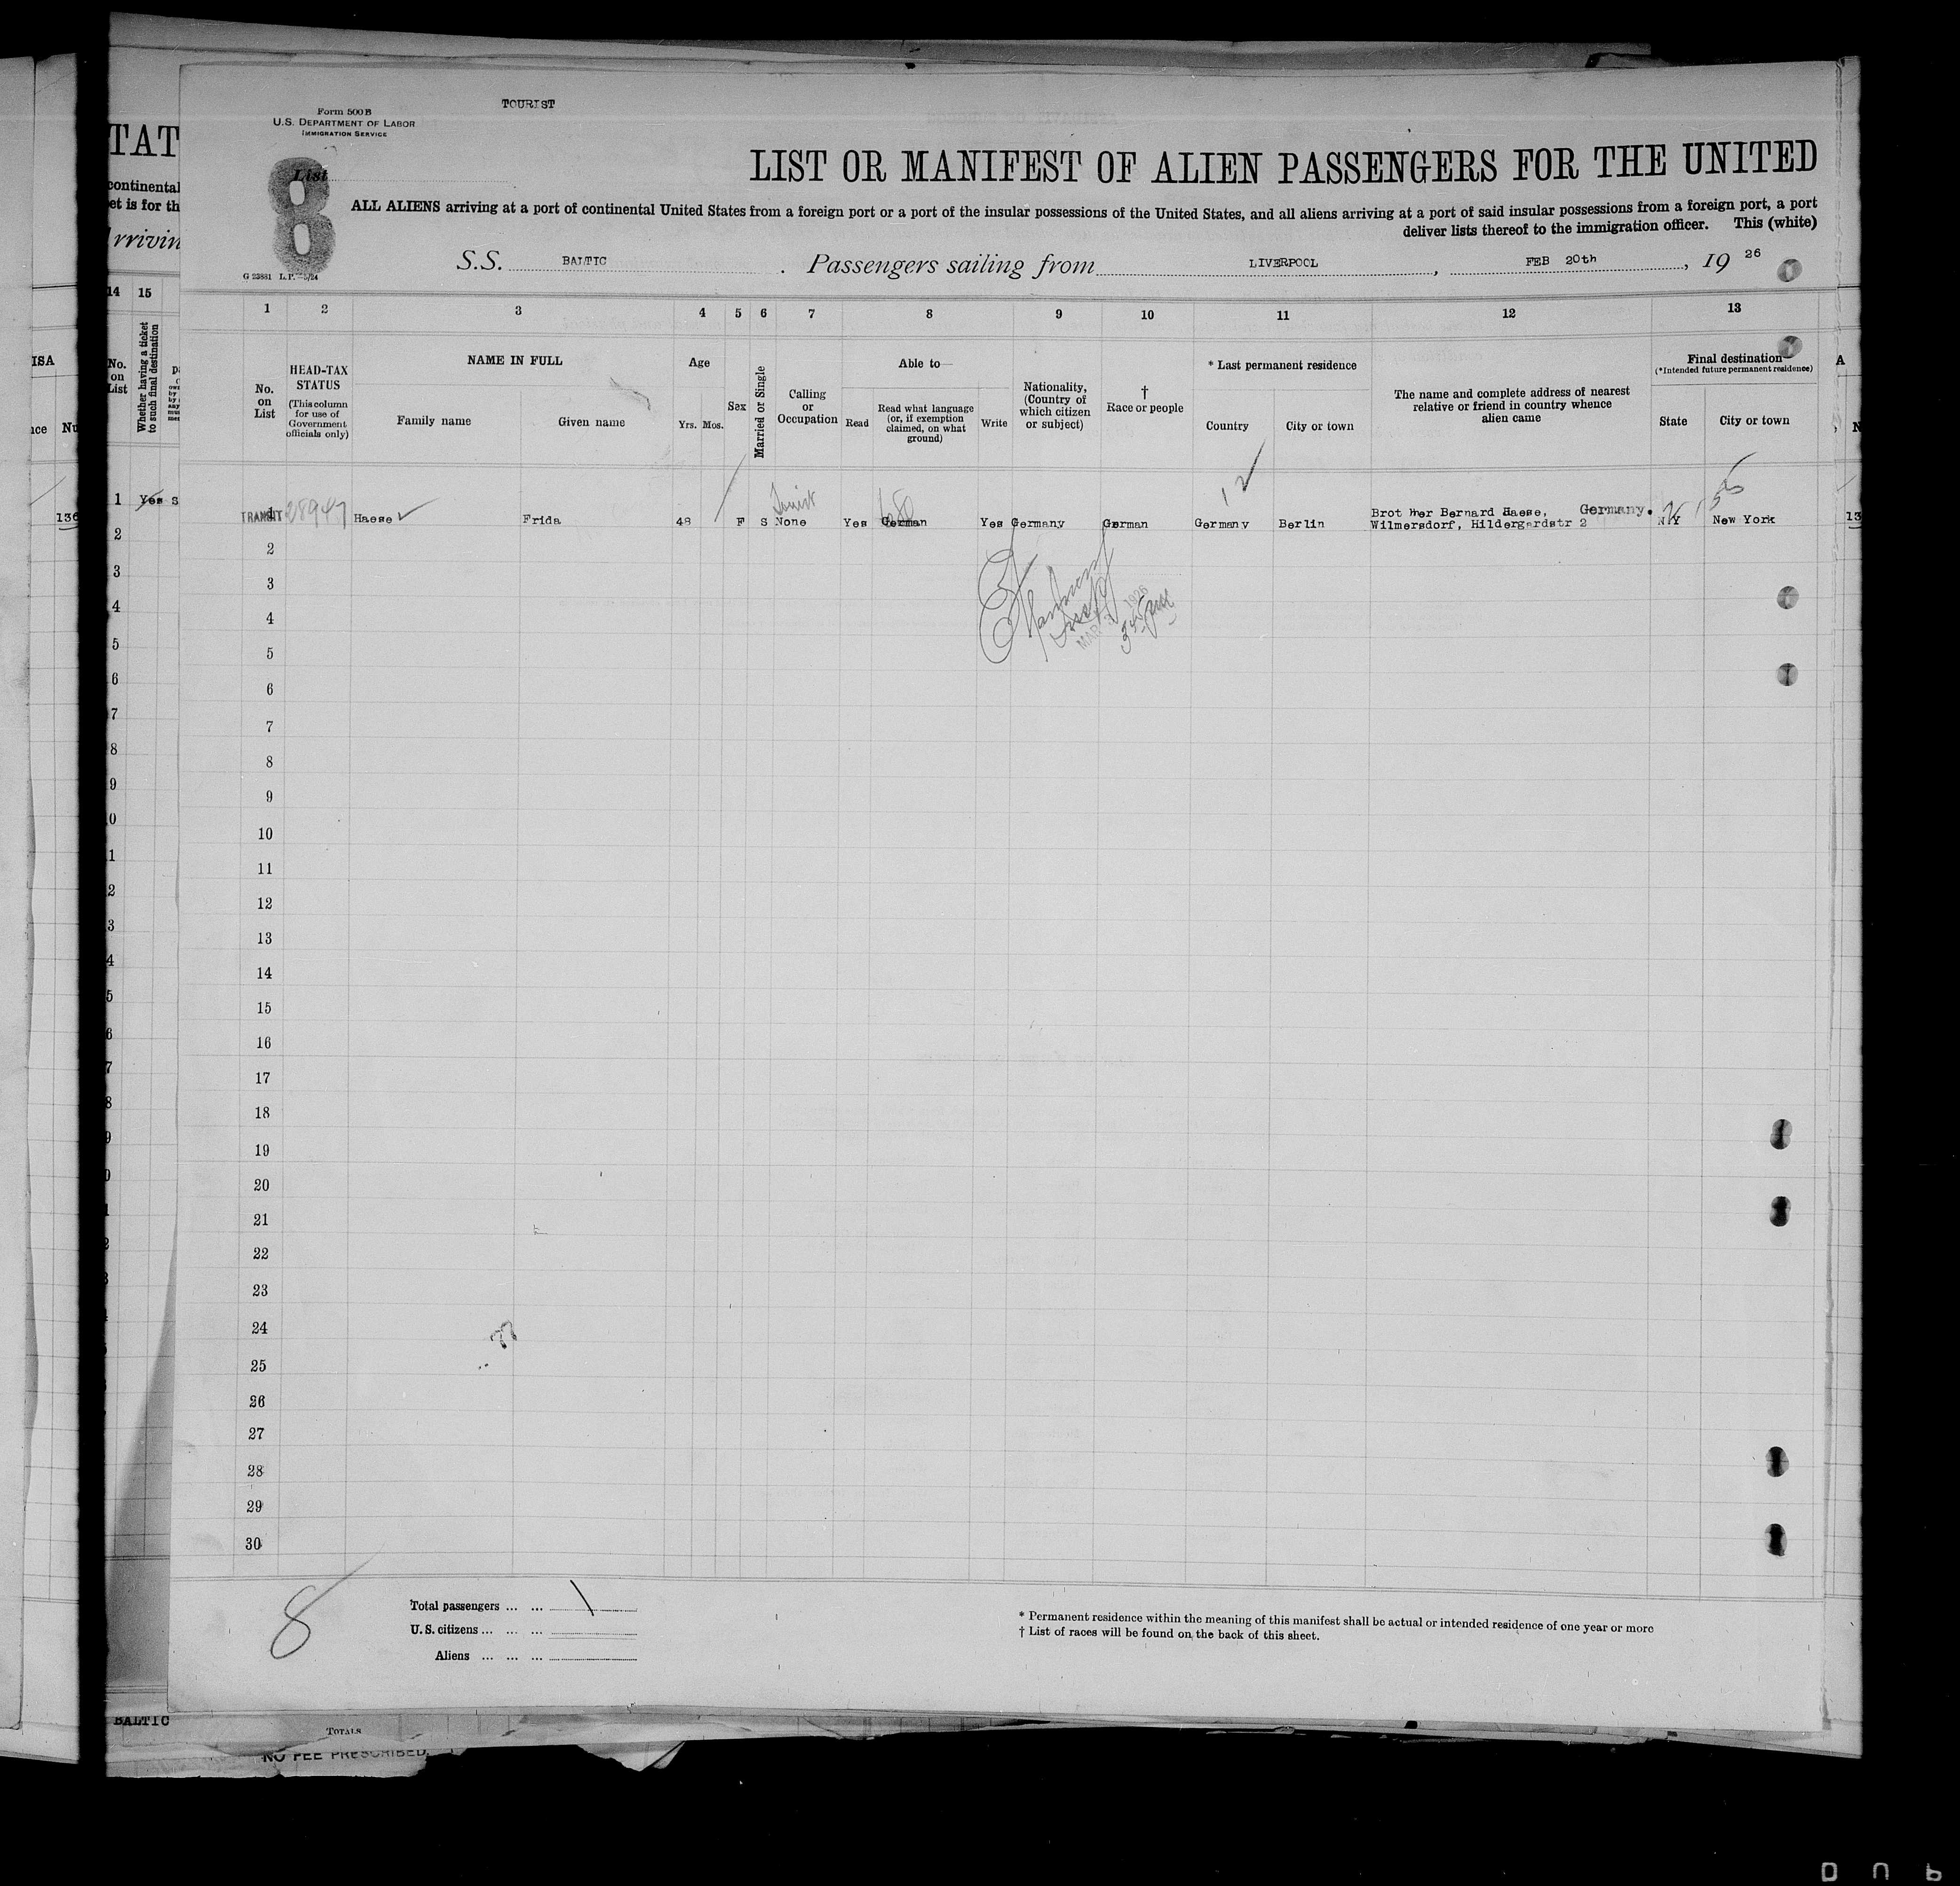 TOURIST
Form 500B
U.S. DEPARTMENT OF LABOR
IMMIGRATION SERVICE
List
8
LIST OR MANIFEST OF ALIEN PASSENGERS FOR THE UNITED
ALL ALIENS arriving at a port of continental United States from a foreign port or a port of the insular possessions of the United States, and all aliens arriving at a port of said insular possessions from a foreign port, a port
deliver lists thereof to the immigration officer. This (white)
S.S. BALTIC. Passengers sailing from LIVERPOOL, FEB 20th, 19 26
G 23881 L.P.—5/24
1 2 3 4 5 6 7 8 9 10 11 12 13
No. on List
HEAD-TAX STATUS (This column for use of Government officials only)
NAME IN FULL
Family name Given name
Age
Yrs. Mos.
Sex
Married or Single
Calling or Occupation
Able to—
Read
Read what language (or, if exemption claimed, on what ground)
Write
Nationality, (Country of which citizen or subject)
† Race or people
* Last permanent residence
Country City or town
The name and complete address of nearest relative or friend in country whence alien came
Final destination
(*Intended future permanent residence)
State City or town
TRANSIT 1 Haese Frida 48 F S None Yes German Yes Germany German Germany Berlin Brot Her Bernard Haese, Germany.
Wilmersdorf, Hildergardstr 2 N Y New York
Tourist
MAR 1926
2
3
4
5
6
7
8
9
10
11
12
13
14
15
16
17
18
19
20
21
22
23
24
25
26
27
28
29
30
8
Total passengers ... ... 1
U.S. citizens ... ... ...
Aliens ... ... ...
* Permanent residence within the meaning of this manifest shall be actual or intended residence of one year or more
† List of races will be found on the back of this sheet.
TAT
continental
et is for th
rrivin
14 15
No. on List
Whether having a ticket to such final destination
1 Yes S
2
3
4
5
6
7
8
9
BALTIC
TOTALS
NO FEE PRESCRIBED.